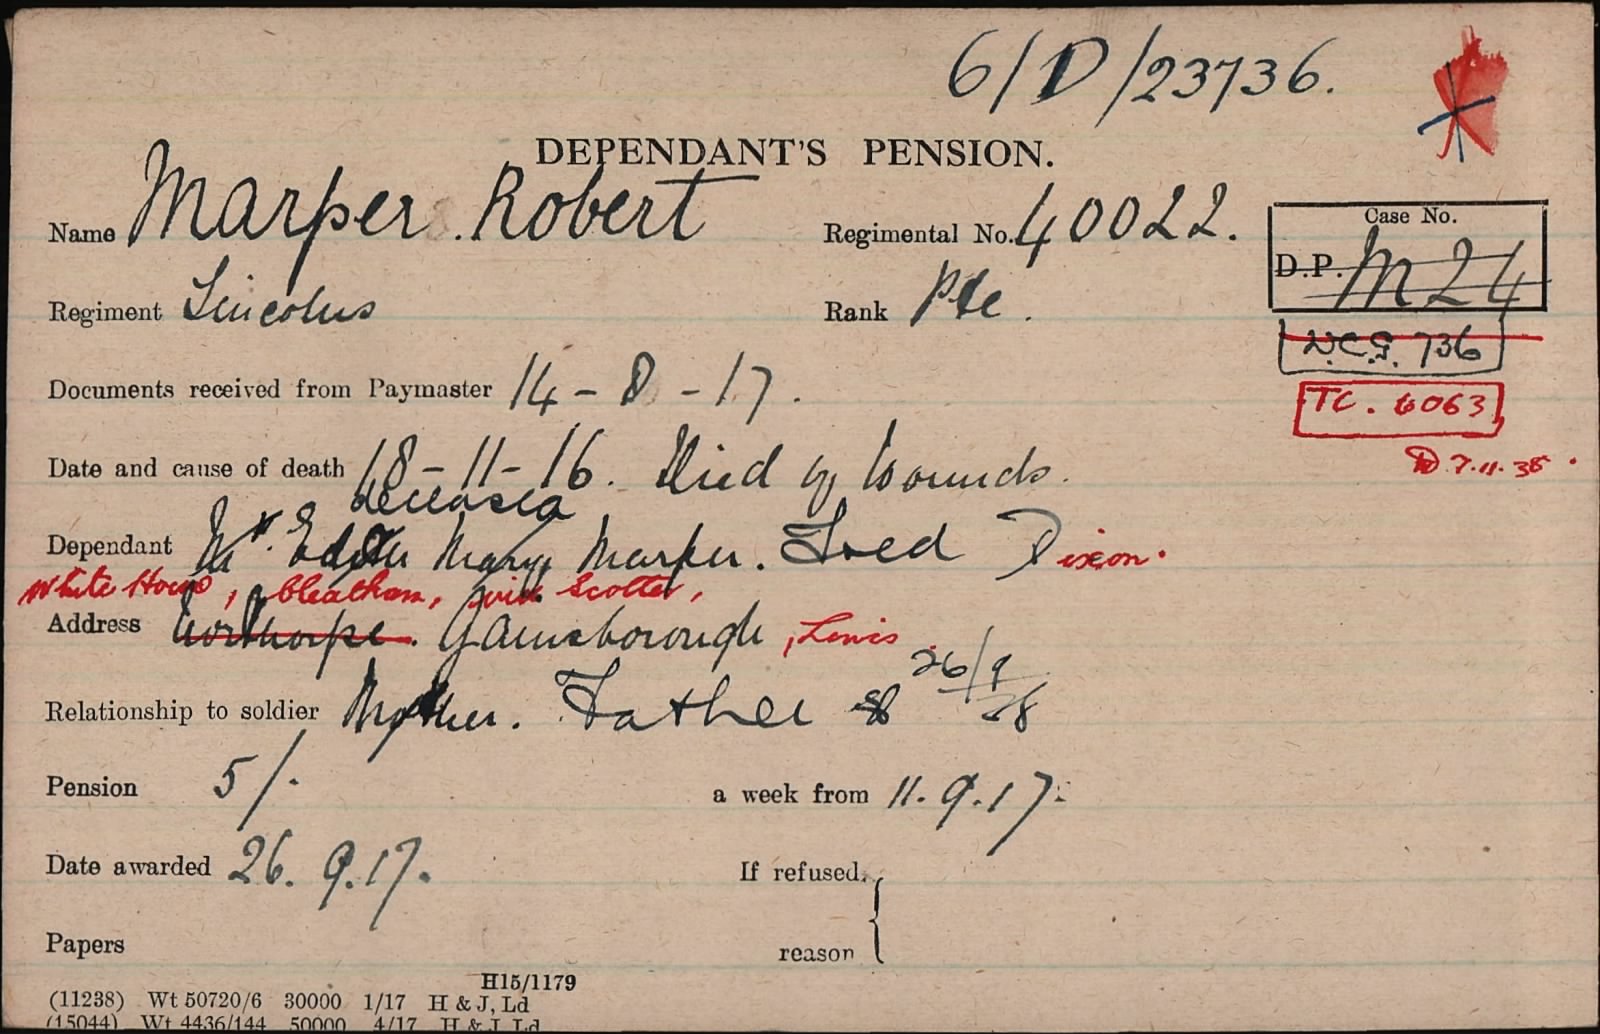 6/D/23736.
DEPENDANT'S PENSION.
Name Marper. Robert Regimental No. 40022.
Case No.
D.P. M24
Regiment Lincolns Rank Pte.
N.C.G. 736
Documents received from Paymaster 14-8-17.
TC. 6063
Date and cause of death 18-11-16. Died of Wounds.
7.11.38.
deceased
Dependant Edith Mary Marper. Fred Dixon.
White House, Bleatham, Scotter,
Address Gainsborough, Lincs
26/9/28
Relationship to soldier Mother. Father
Pension 5/- a week from 11.9.17.
Date awarded 26.9.17. If refused,
reason
Papers
H15/1179
(11238) Wt 50720/6 30000 1/17 H & J, Ld
(15044) Wt 4436/144 50000 4/17 H & J, Ld